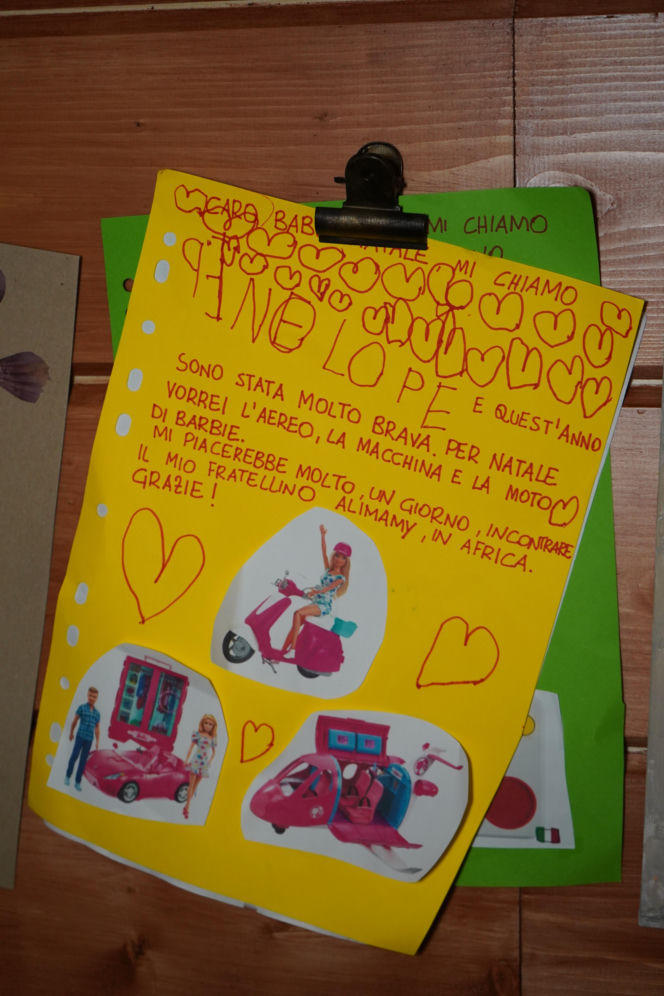 MI CHIAMO
CARO BAB NATALE MI CHIAMO
PENELOPE
E QUEST'ANNO
SONO STATA MOLTO BRAVA. PER NATALE
VORREI L'AEREO, LA MACCHINA E LA MOTO
DI BARBIE.
MI PIACEREBBE MOLTO, UN GIORNO, INCONTRARE
IL MIO FRATELLINO ALIMAMY, IN AFRICA.
GRAZIE!